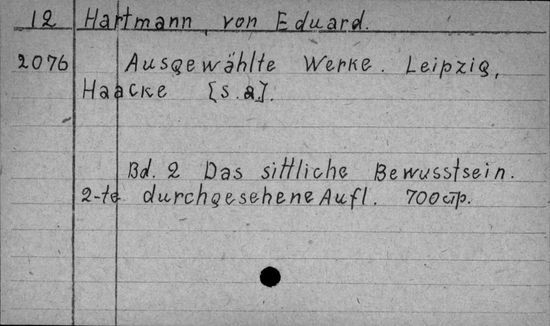 12 Hartmann, von Eduard.
2076 Ausgewählte Werke. Leipzig,
Haacke [s.a.].
Bd. 2 Das sittliche Bewusstsein.
2-te durchgesehene Aufl. 700 стр.